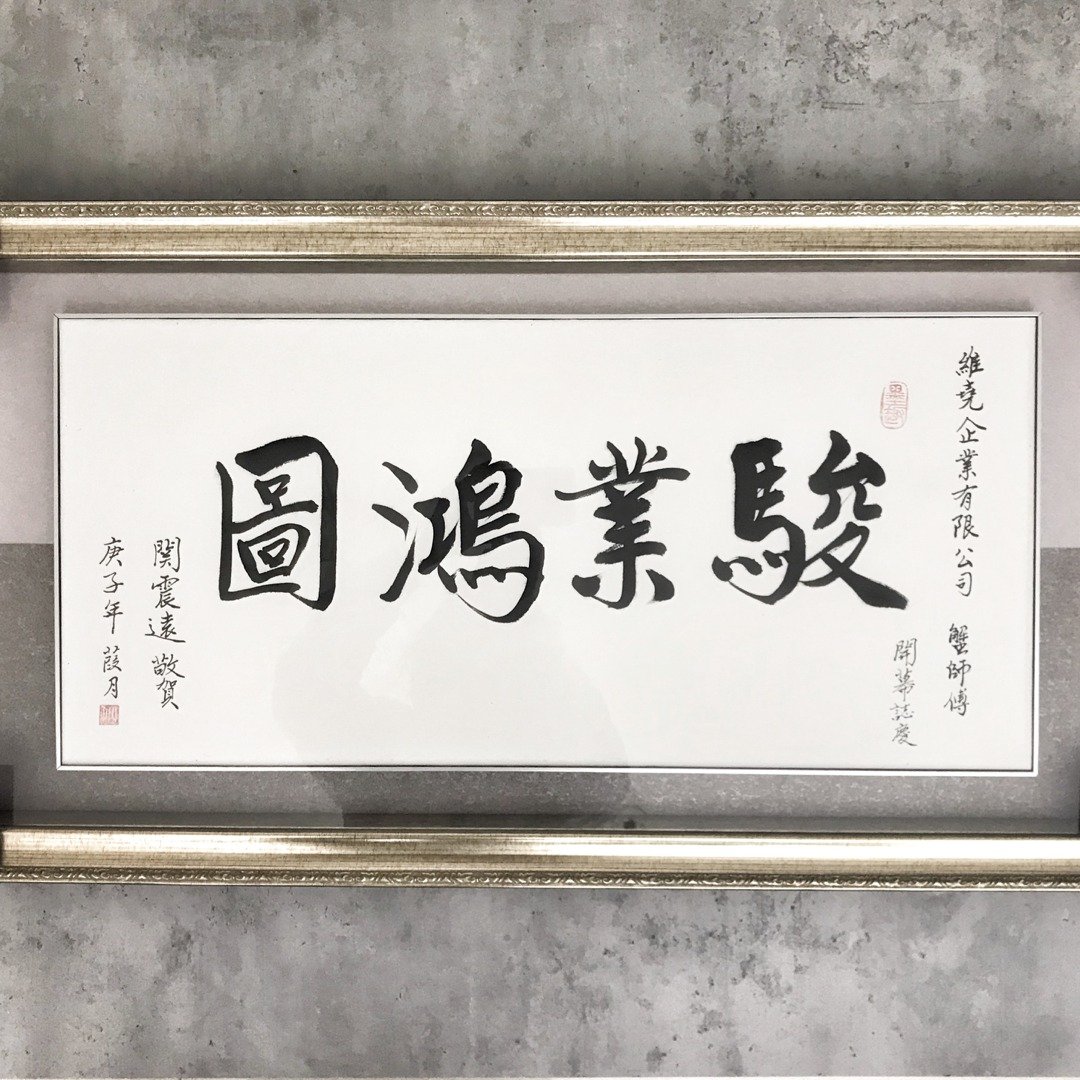 維堯企業有限公司 蟹師傅
開幕誌慶
駿業鴻圖
関震遠 敬賀
庚子年 葭月